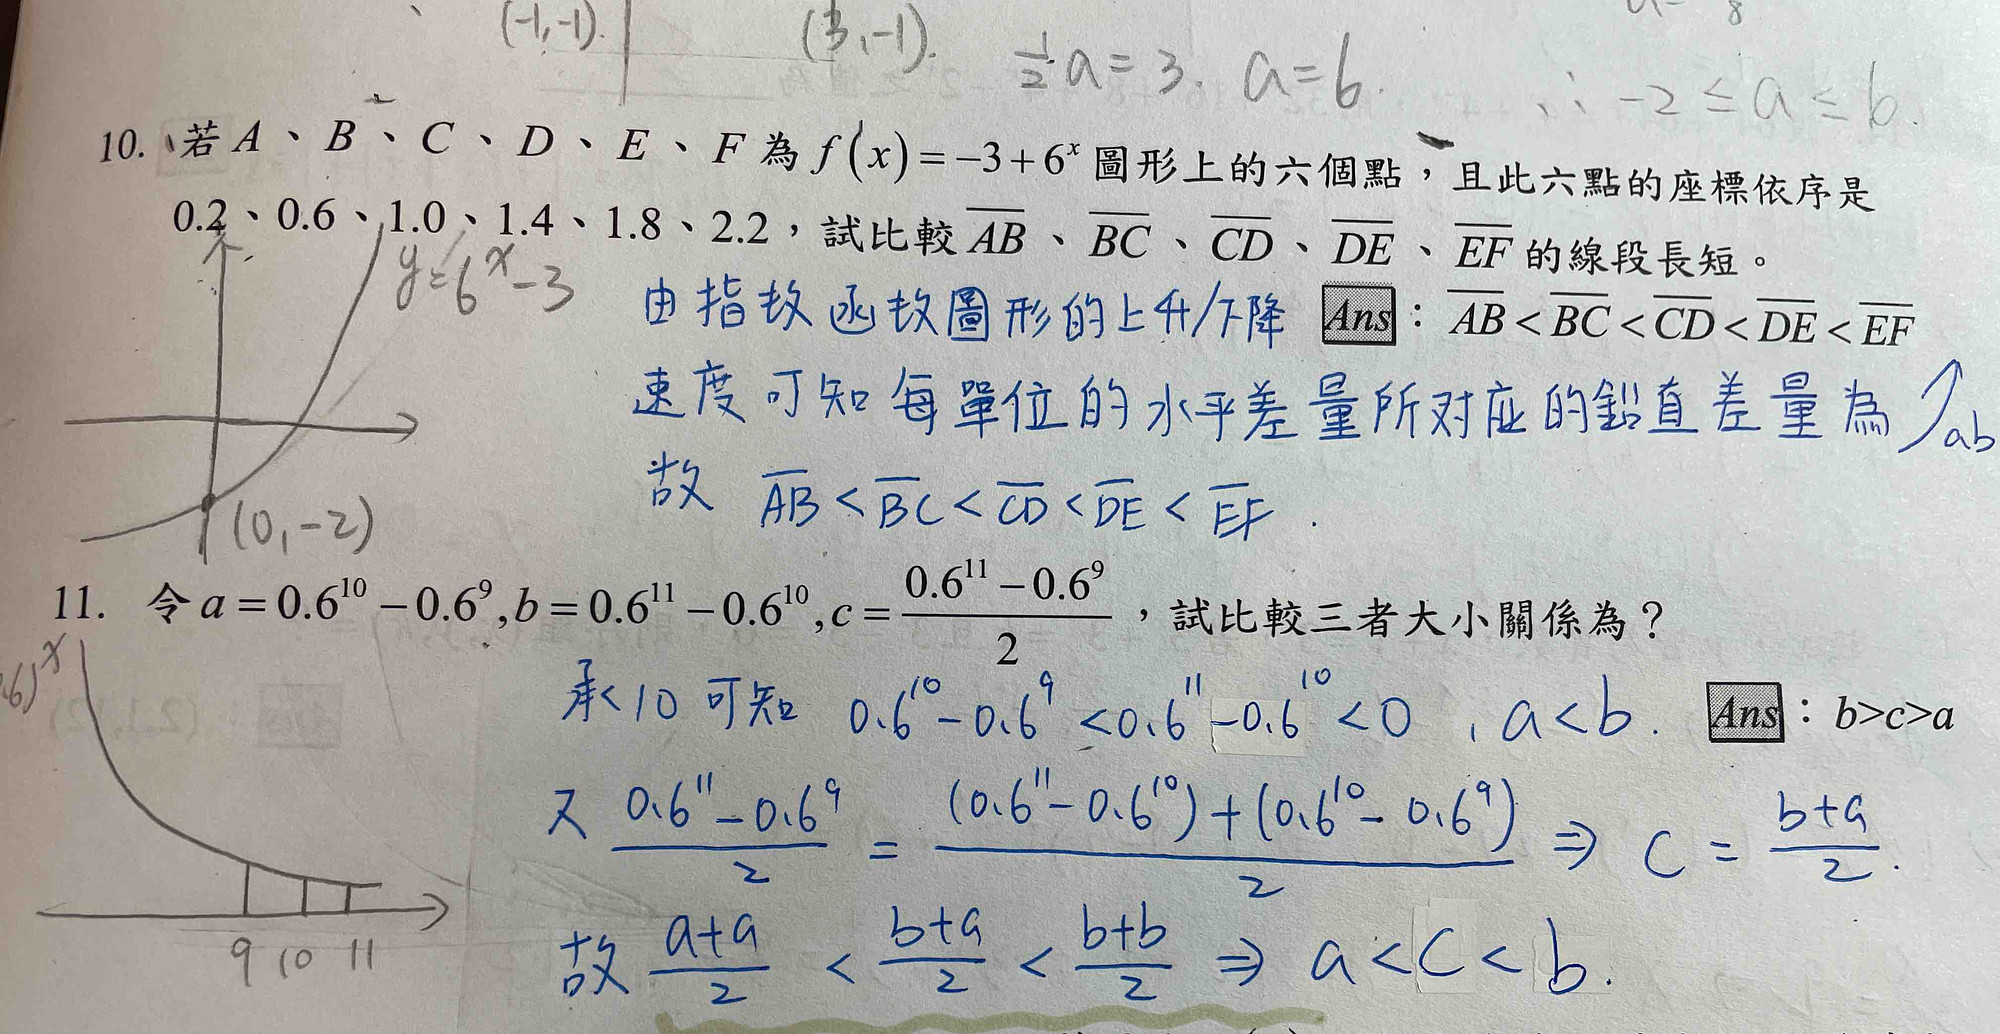 (-1,-1).
(3,-1).
1/2 a = 3. a = 6.
∴ -2 ≤ a ≤ 6.
10. 若 A、B、C、D、E、F 為 f(x) = -3 + 6^x 圖形上的六個點，且此六點的座標依序是
0.2、0.6、1.0、1.4、1.8、2.2，試比較 \overline{AB}、\overline{BC}、\overline{CD}、\overline{DE}、\overline{EF} 的線段長短。
y = 6^x - 3
由指数函数圖形的上升/下降
Ans：\overline{AB} < \overline{BC} < \overline{CD} < \overline{DE} < \overline{EF}
速度可知每單位的水平差量所对应的鉛直差量為↗
故 \overline{AB} < \overline{BC} < \overline{CD} < \overline{DE} < \overline{EF}.
(0,-2)
11. 令 a = 0.6^{10} - 0.6^9, b = 0.6^{11} - 0.6^{10}, c = \frac{0.6^{11} - 0.6^9}{2}，試比較三者大小關係為？
承10可知 0.6^{10} - 0.6^9 < 0.6^{11} - 0.6^{10} < 0, a < b.
Ans：b>c>a
又 \frac{0.6^{11} - 0.6^9}{2} = \frac{(0.6^{11} - 0.6^{10}) + (0.6^{10} - 0.6^9)}{2} ⇒ c = \frac{b+a}{2}.
9 10 11
故 \frac{a+a}{2} < \frac{b+a}{2} < \frac{b+b}{2} ⇒ a < c < b.